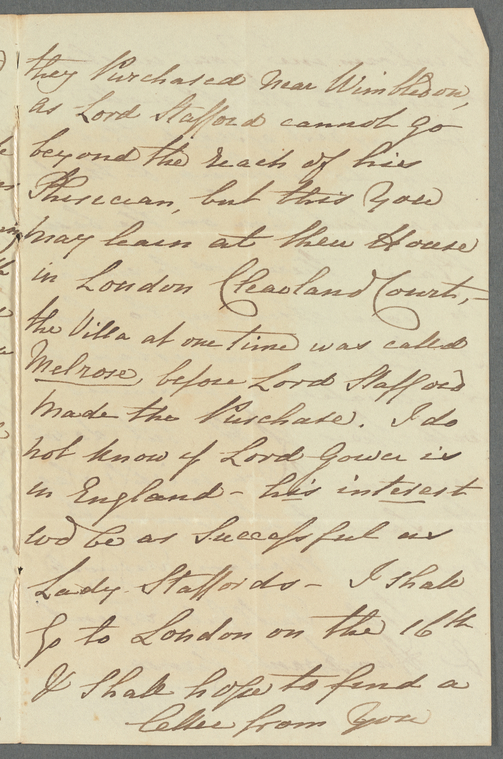 they Purchased near Wimbledon,
as Lord Stafford cannot go
beyond the reach of his
Phisician, but this you
may learn at their House
in London Cleaveland Court,-
the Villa at one time was called
Melrose, before Lord Stafford
made the Purchase. I do
not know if Lord Gower is
in England - his interest
wd be as Successful as
Lady Staffords - I shall
go to London on the 16th
& Shall hope to find a
letter from you